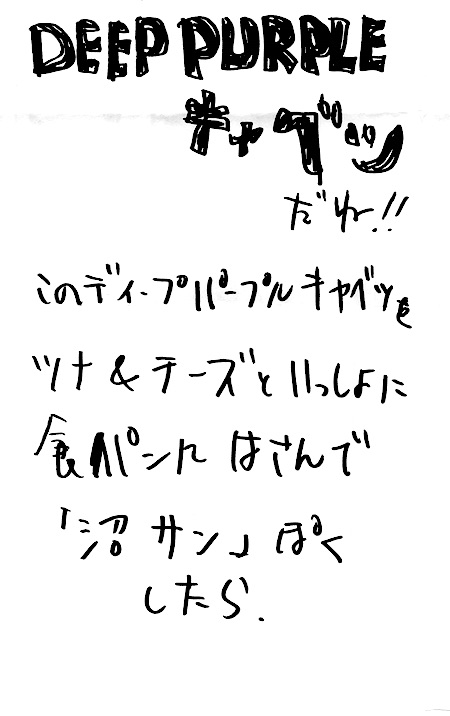 DEEP PURPLE
キャベツ
だね!!
このディープパープルキャベツを
ツナ&チーズといっしょに
食パンにはさんで
「沼サン」ぽく
したら.